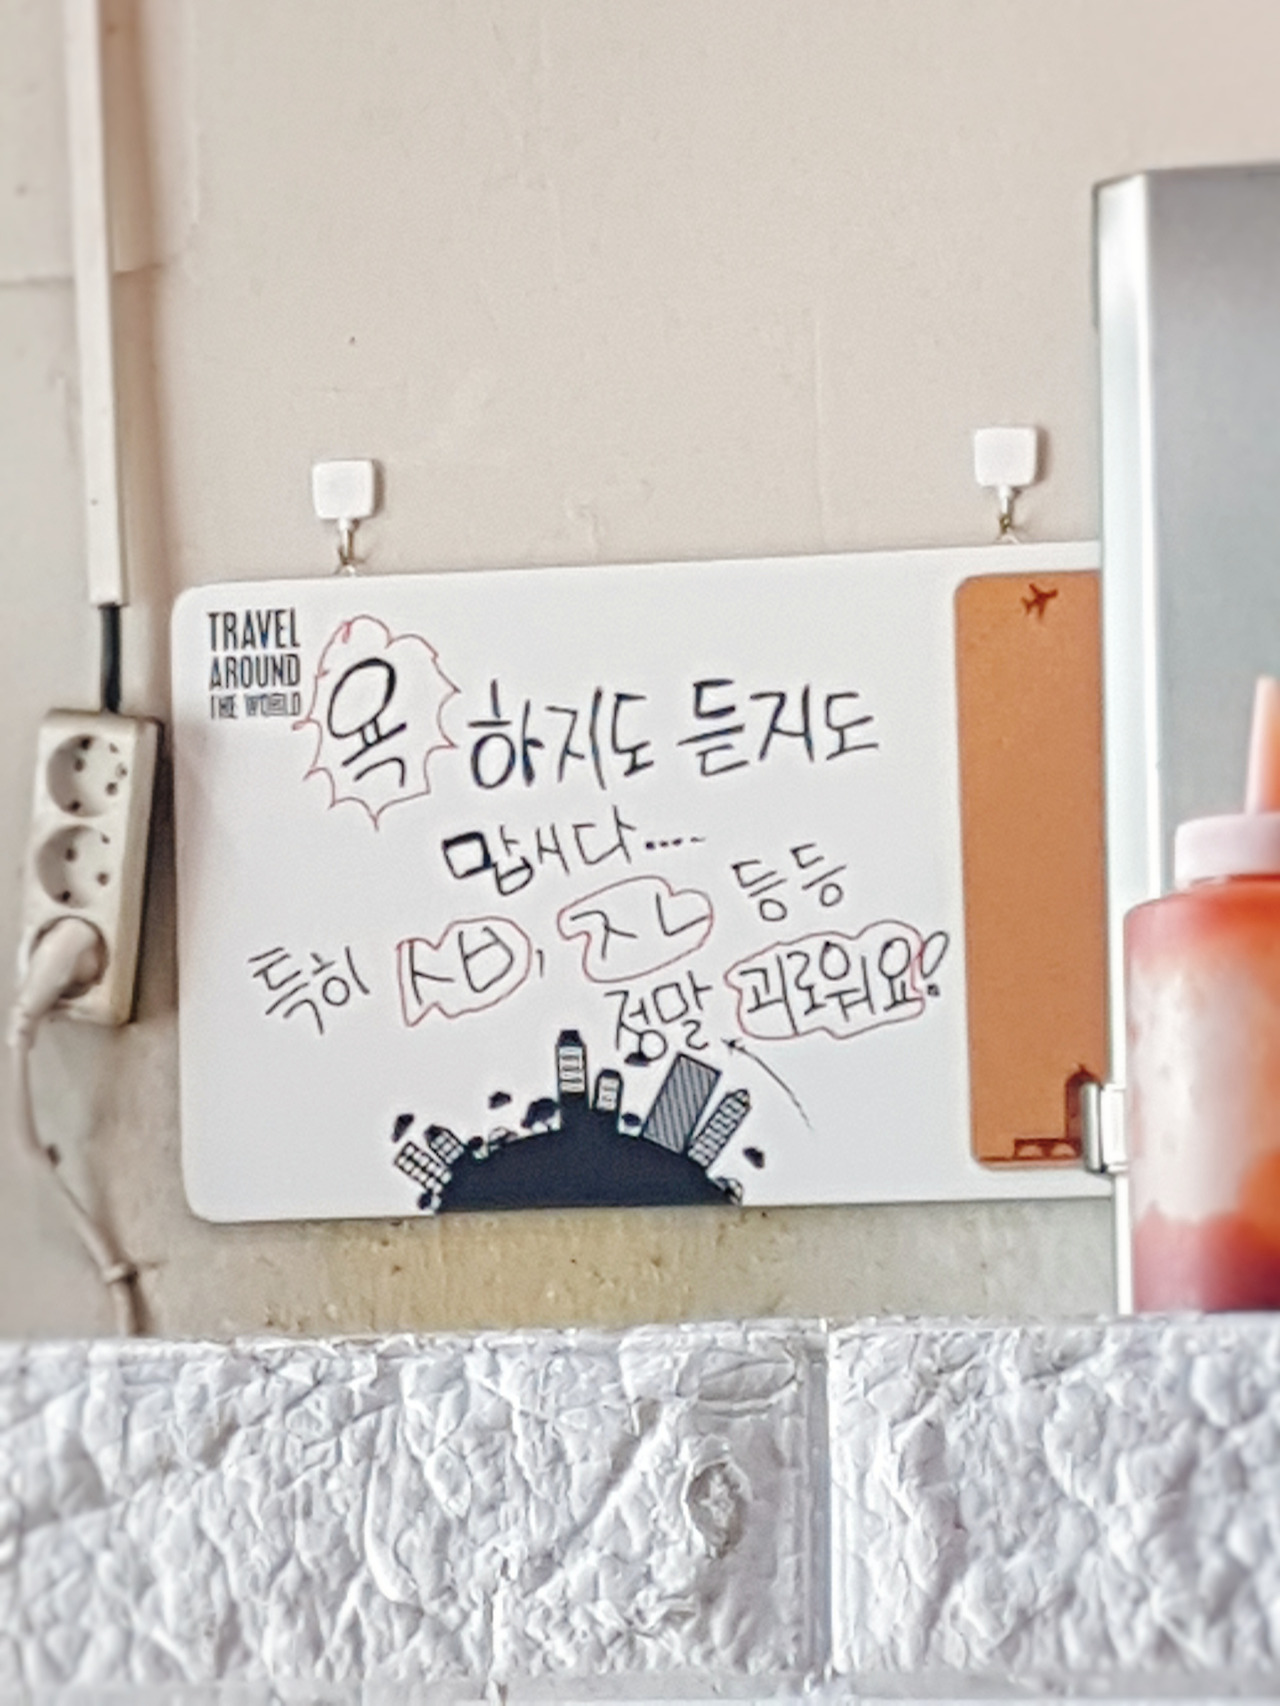 TRAVEL
AROUND
THE WORLD
욕 하지도 듣지도
맙시다....
특히 ㅅㅂ, ㅈㄴ 등등
정말 괴로워요!